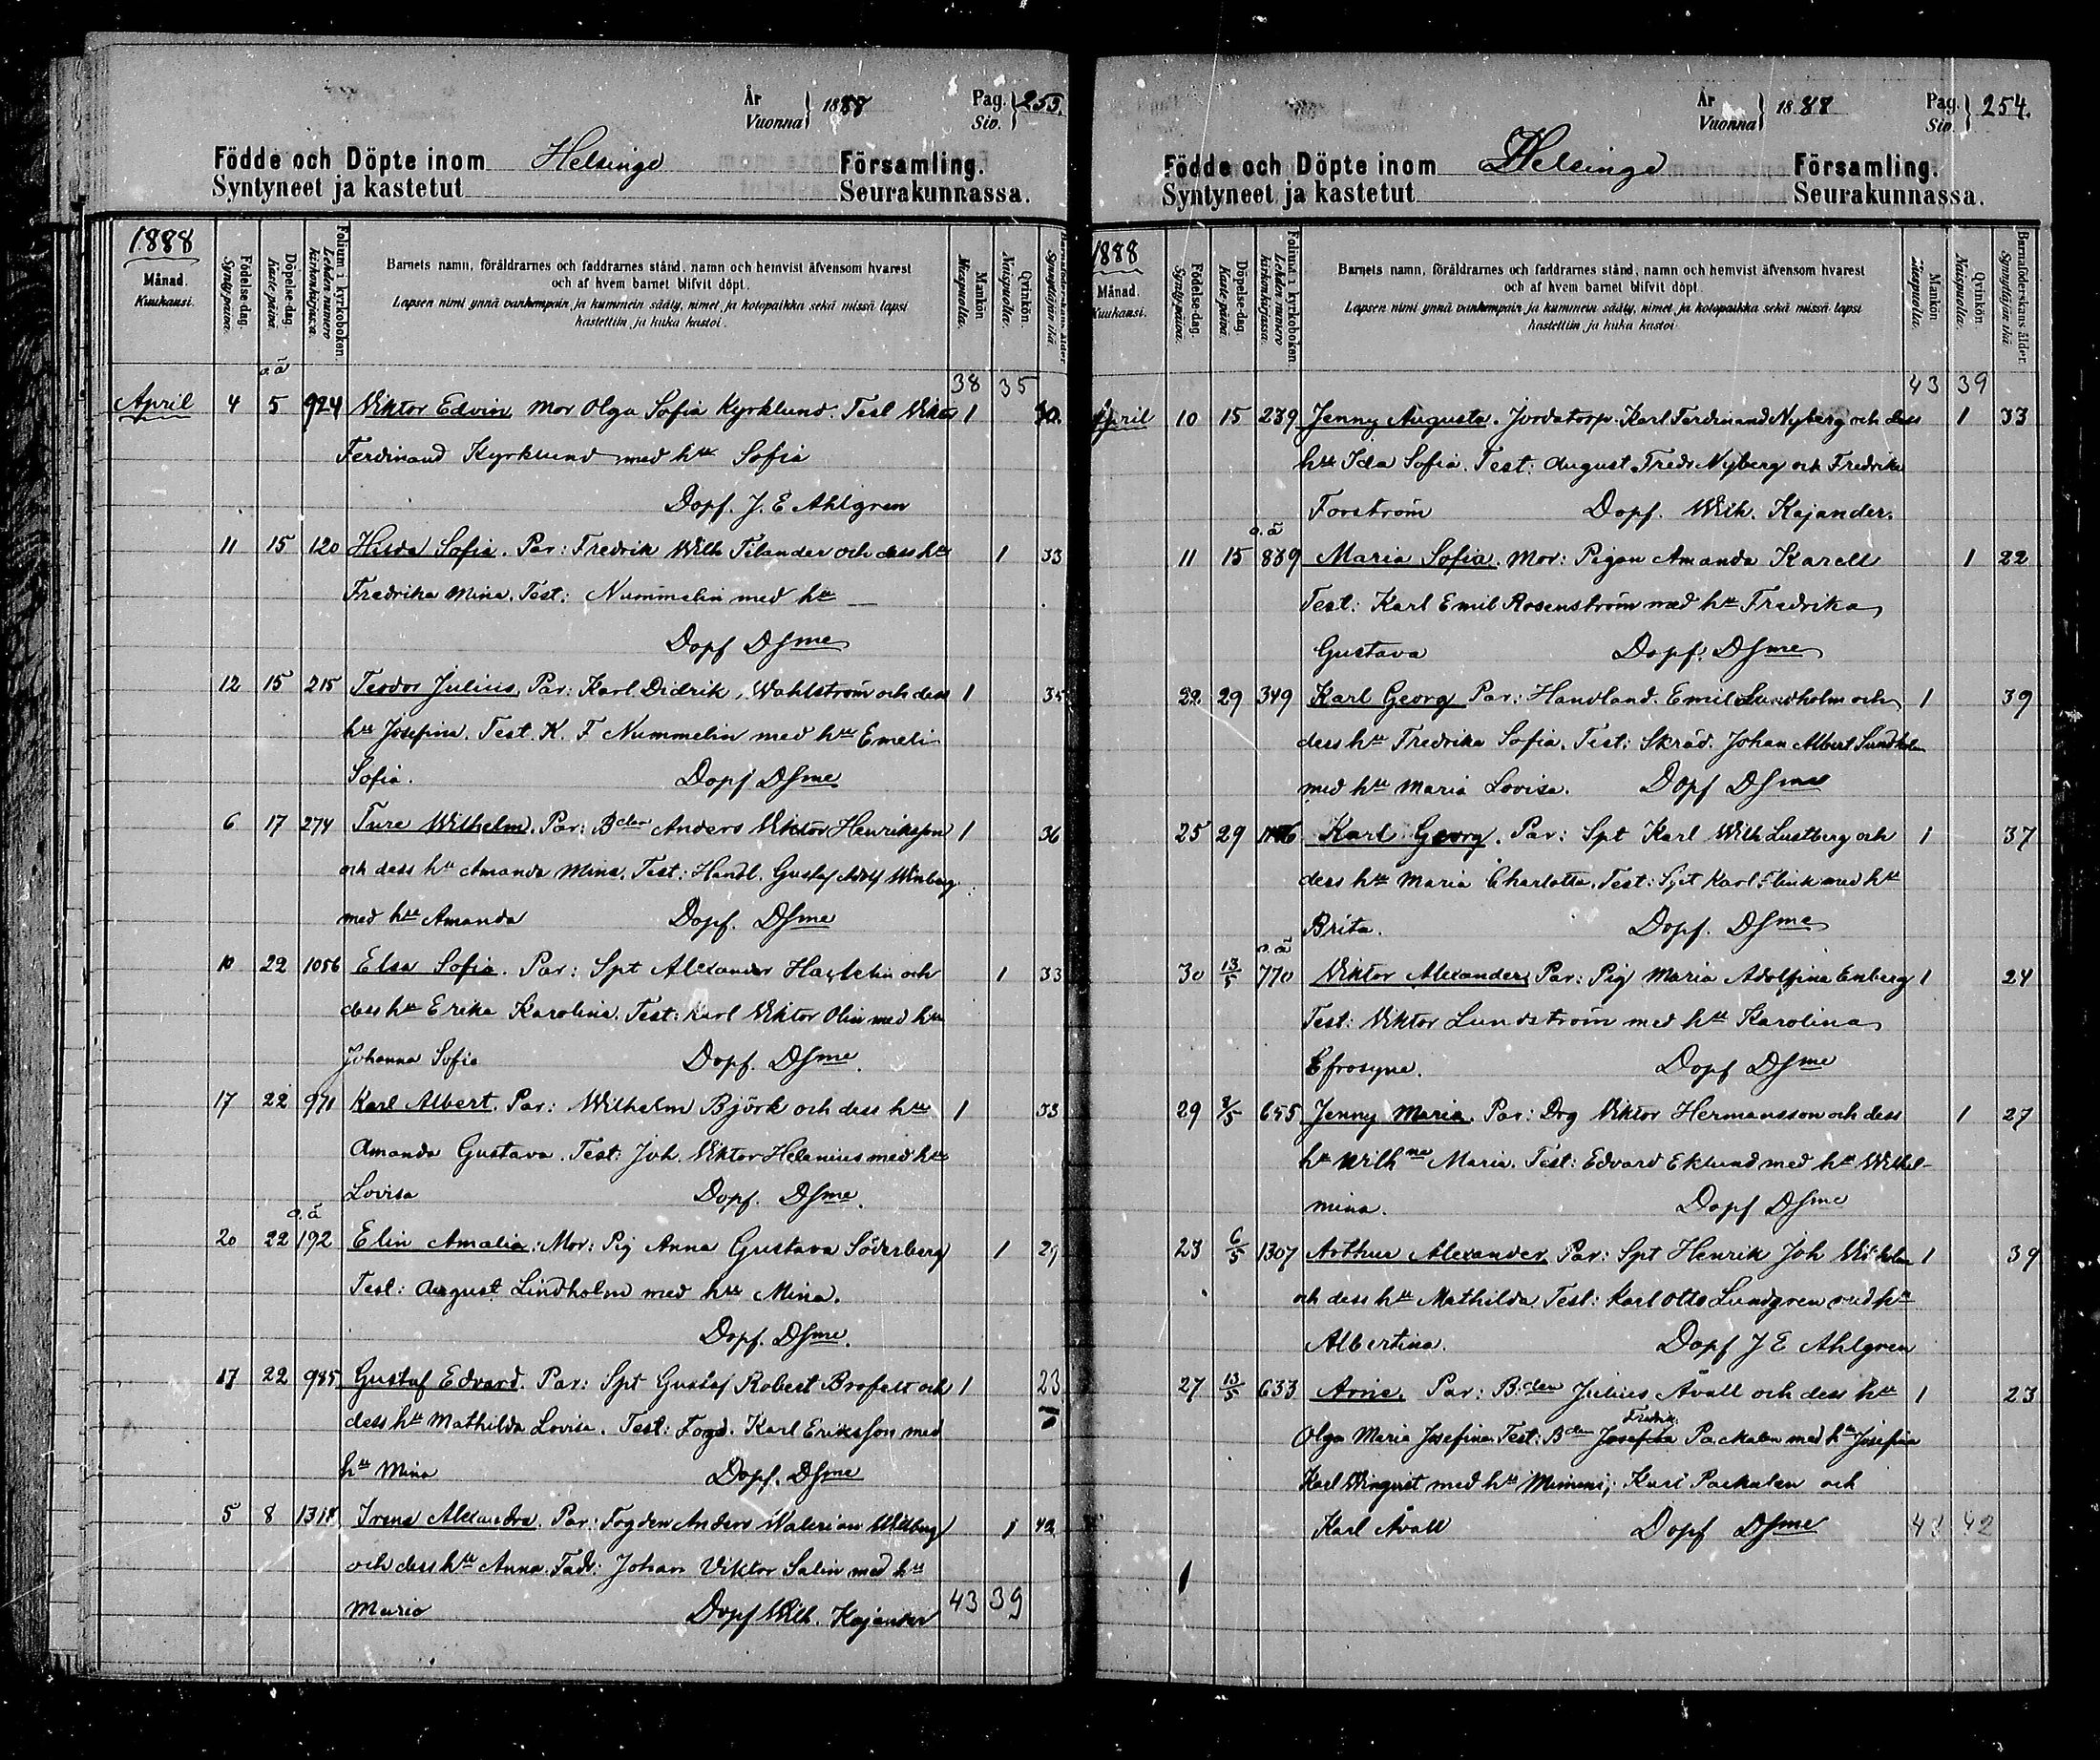 År
Vuonna } 1888 Pag. Siv. } 253.
Födde och Döpte inom Helsinge Församling.
Syntyneet ja kastetut Seurakunnassa.
1888
Månad. Kuukausi.
Födelse-dag. Synty-päivä.
Döpelse-dag. Kaste-päivä.
Folium i kyrkoboken. Lehden numero kirkonkirjassa.
Barnets namn, föräldrarnes och faddrarnes stånd, namn och hemvist äfvensom hvarest
och af hvem barnet blifvit döpt.
Lapsen nimi ynnä vanhempain ja kummein sääty, nimet ja kotopaikka sekä missä lapsi
kastettiin ja kuka kastoi.
Mankön Miespuolia.
Qvinkön. Naispuolia.
Barnaföderskans ålder. Synnyttäjän ikä.
o.ä 38 35
April 4 5 924 Viktor Edvin, Mor Olga Sofia Kyrklund. Test Viktor 1
Ferdinand Kyrklund med hu Sofia
Dopf. J. E Ahlgren
11 15 120 Hilda Sofia. Par: Fredrik Wilh Tilander och dess hu 1 33
Fredrika Mina. Test: Nummelin med hu —
Dopf DSme
12 15 215 Teodor Julius, Par: Karl Didrik Wahlström och dess 1 35
hu Josefina. Test. K. F Nummelin med hu Emeli
Sofia. Dopf DSme
6 17 274 Ture Wilhelm. Par: Bden Anders Viktor Henriksson 1 36
och dess hu Amanda Mina. Test: Handl. Gustaf Adolf Winberg
med hu Amanda Dopf. DSme
10 22 1056 Elsa Sofia. Par: Spt Alexander och 1 33
dess hu Erika Karolina. Test: Karl Viktor Olin med hu
Johanna Sofia Dopf. DSme.
17 22 971 Karl Albert. Par: Wilhelm Björk och dess hu 1 33
Amanda Gustava. Test: Joh. Viktor Helenius med hu
Lovisa Dopf. DSme.
o.ä
20 22 192 Elin Amalia: Mor: Pig Anna Gustava Söderberg 1 29
Test: August Lindholm med hu Mina.
Dopf. DSme.
17 22 985 Gustaf Edvard. Par: Spt Gustaf Robert Brofelt och 1 23
dess hu Mathilda Lovisa. Test: Fogd. Karl Eriksson med
hu Mina Dopf. DSme
5 8 1318 Irene Alexandra. Par: Fogden Anders Valerian 1 42
och dess hu Anna. Fadr: Johan Viktor Salin med hu
Maria Dopf Wilh. Kajander 43 39
År
Vuonna } 1888 Pag. Siv. } 254.
Födde och Döpte inom Helsinge Församling.
Syntyneet ja kastetut Seurakunnassa.
1888
Månad. Kuukausi.
Födelse-dag. Synty-päivä.
Döpelse-dag. Kaste-päivä.
Folium i kyrkoboken. Lehden numero kirkonkirjassa.
Barnets namn, föräldrarnes och faddrarnes stånd, namn och hemvist äfvensom hvarest
och af hvem barnet blifvit döpt.
Lapsen nimi ynnä vanhempain ja kummein sääty, nimet ja kotopaikka sekä missä lapsi
kastettiin ja kuka kastoi.
Mankön Miespuolia.
Qvinkön. Naispuolia.
Barnaföderskans ålder. Synnyttäjän ikä.
43 39
April 10 15 239 Jenny Augusta. Jordatorp. Karl Ferdinand Nyberg och dess 1 33
hu Ida Sofia. Test: August Fredr Nyberg och Fredrika
Forström Dopf. Wilh. Kajander.
o.ä
11 15 839 Maria Sofia. Mor: Pigan Amanda Karell 1 22
Test: Karl Emil Rosenström med hu Fredrika
Gustava Dopf. DSme
22 29 349 Karl Georg Par: Handland. Emil Sundholm och 1 39
dess hu Fredrika Sofia. Test: Skräd. Johan Albert Sundholm
med hu Maria Lovisa. Dopf DSme
25 29 Karl Georg. Par: Spt Karl Wilh Lustberg och 1 37
dess hu Maria Charlotta. Test: Spt Karl Flink med hu
Brita. Dopf. DSme
o.ä
30 13/5 770 Viktor Alexander, Par: Pig Maria Adolfina Enberg 1 24
Test: Viktor Lundström med hu Karolina
Efrosyne. Dopf DSme
29 655 Jenny Maria. Par: Drg Viktor Hermansson och dess 1 27
hu Wilhna Maria. Test: Edvard Eklund med hu Wilhel-
mina. Dopf DSme
23 6/5 1307 Arthur Alexander. Par: Spt Henrik Joh 1 39
och dess hu Mathilda Test: Karl Otto Lundgren med hu
Albertina. Dopf J E Ahlgren
27 13/5 633 Arne. Par: Bden Julius Åvall och dess hu 1 23
Fredrik
Olga Maria Josefina. Test: Bden Josefita Packalen med hu Josefina
Karl Winqvist med hu Mimmi; Karl Packalen och
Karl Åvall Dopf DSme 42